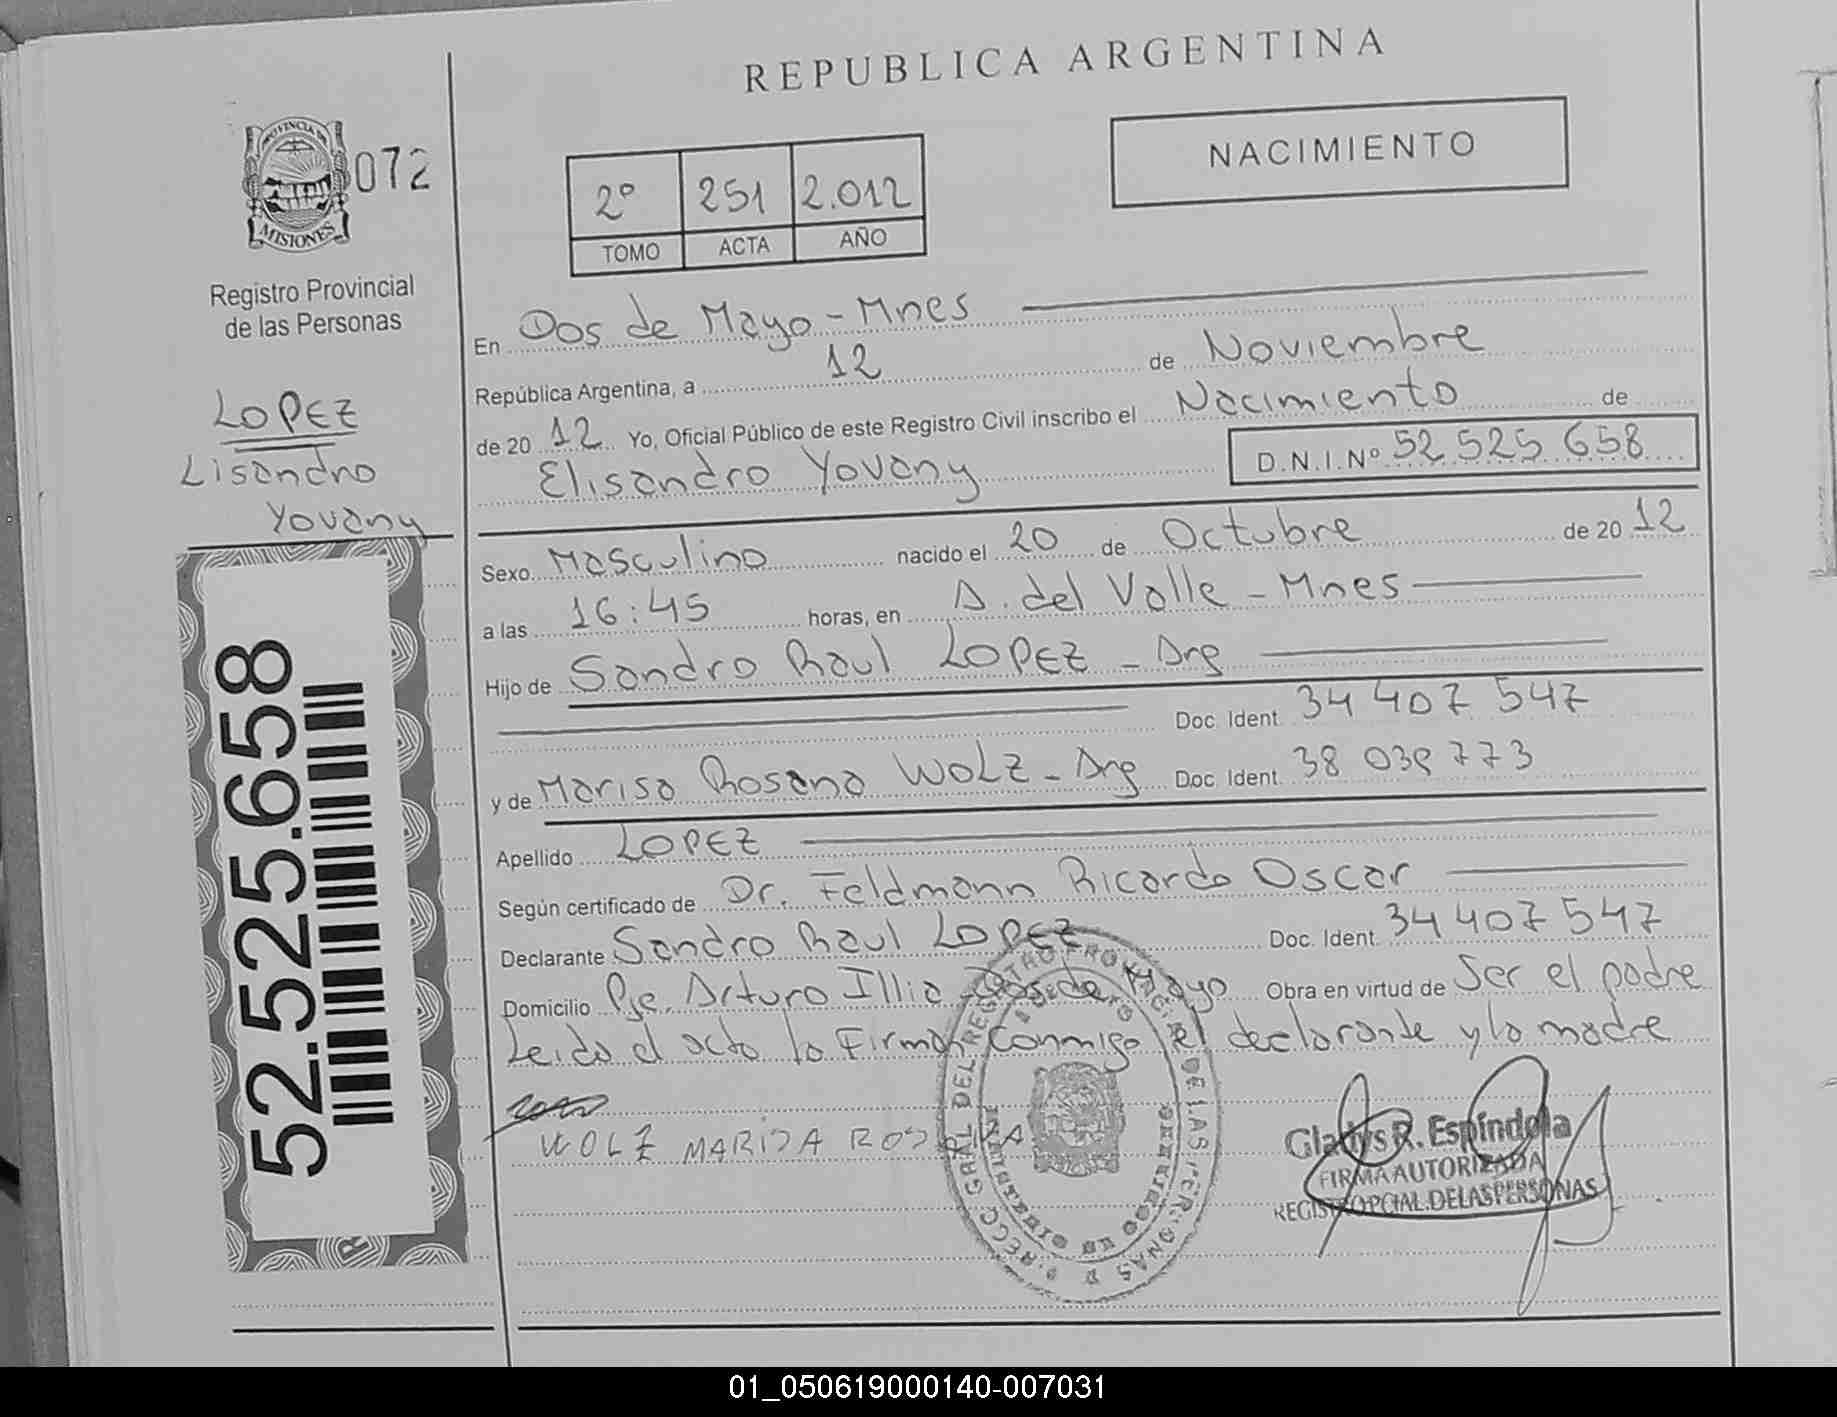 REPUBLICA ARGENTINA
NACIMIENTO
PROVINCIA DE
MISIONES
072
Registro Provincial
de las Personas
2º 251 2.012
TOMO ACTA AÑO
LOPEZ
Lisandro
Yovany
52.525.658
En Dos de Mayo - Mnes
República Argentina, a 12 de Noviembre
de 20 12 Yo, Oficial Público de este Registro Civil inscribo el Nacimiento de
Elisandro Yovany D.N.I.Nº 52 525 658
Sexo Masculino nacido el 20 de Octubre de 20 12
a las 16:45 horas, en A. del Valle - Mnes
Hijo de Sandro Raul LOPEZ - Arg
Doc. Ident. 34 407 547
y de Marisa Rosana WOLZ - Arg Doc. Ident. 38 039 773
Apellido LOPEZ
Según certificado de Dr. Feldmann Ricardo Oscar
Declarante Sandro Raul LOPEZ Doc. Ident. 34 407 547
Domicilio Pje. Arturo Illia - Dos de Mayo Obra en virtud de Ser el padre
Leida el acta la Firman Conmigo el declarante y la madre
WOLZ MARISA ROSANA
Gladys R. Espíndola
FIRMA AUTORIZADA
REGISTRO PCIAL. DE LAS PERSONAS
01_050619000140-007031